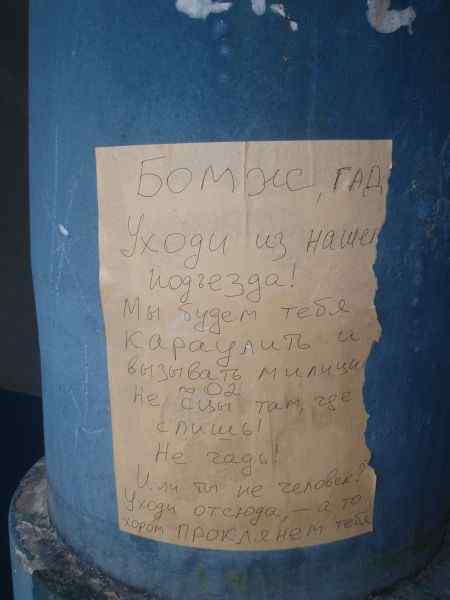 Бомж, гад
Уходи из нашег
подъезда!
Мы будем тебя
караулить и
вызывать милици
~02
Не сцы там, где
спишь!
Не гадь!
Или ты не человек?
Уходи отсюда, – а то
хором ПРОКЛЯНЕМ тебя